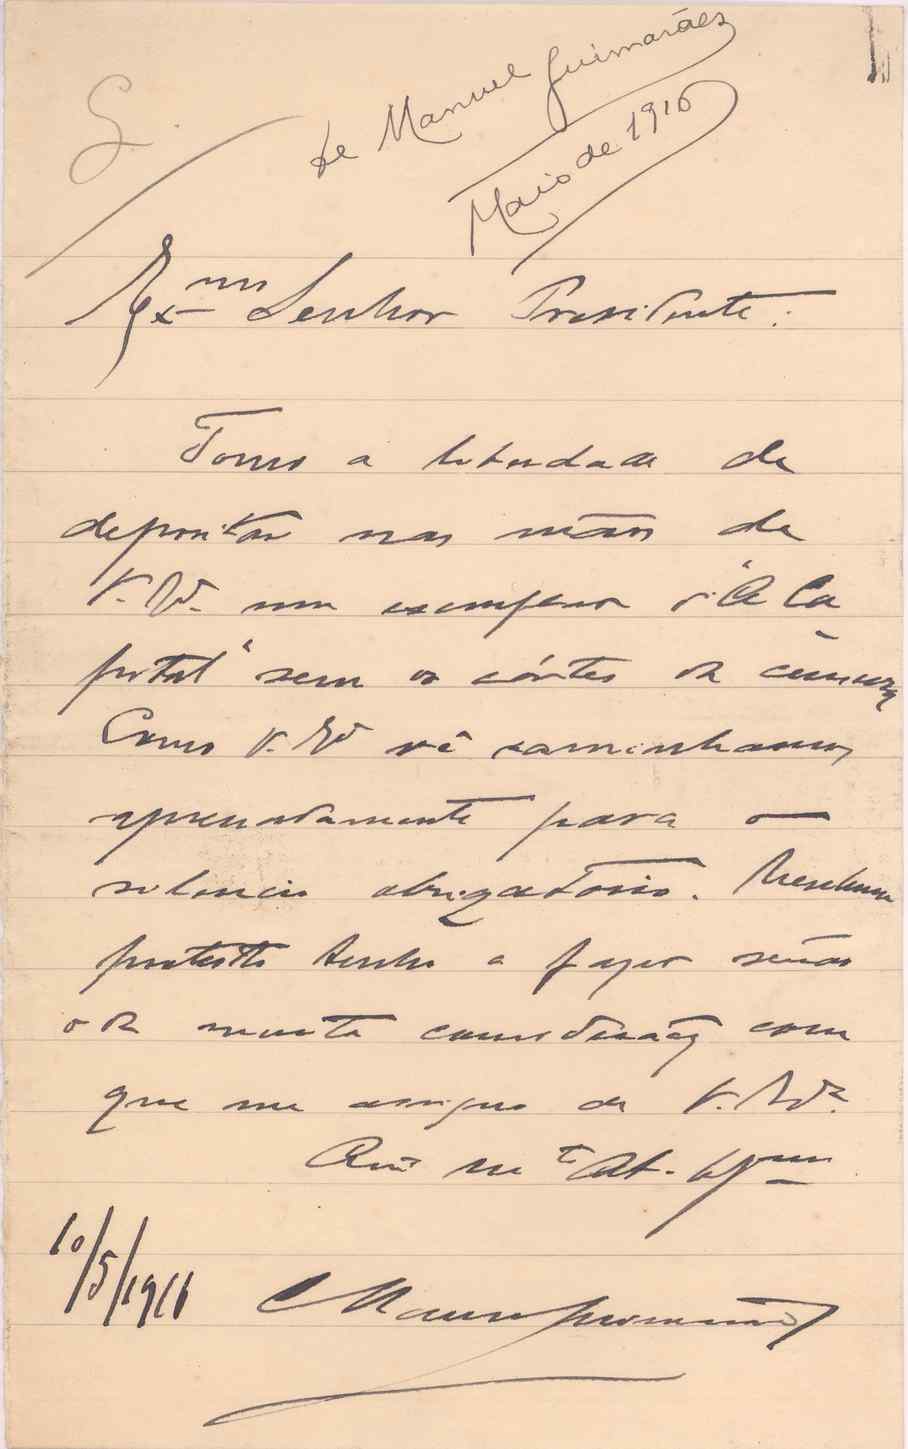 G.
de Manuel Guimarães
Maio de 1916
Exmo Senhor Presidente:
Tomo a liberdade de
depositar nas mãos de
V. Exª. um exemplar d'"A Ca
pital" sem os córtes da censura
Como V. Exª vê caminhamos
apressadamente para o
silencio obrigatorio. Nenhum
protesto tenho a fazer senão
o da muita consideração com
que me assigno de V. Exª.
Amº Mtº At. Vor
10/5/1916 Manuel Guimarães